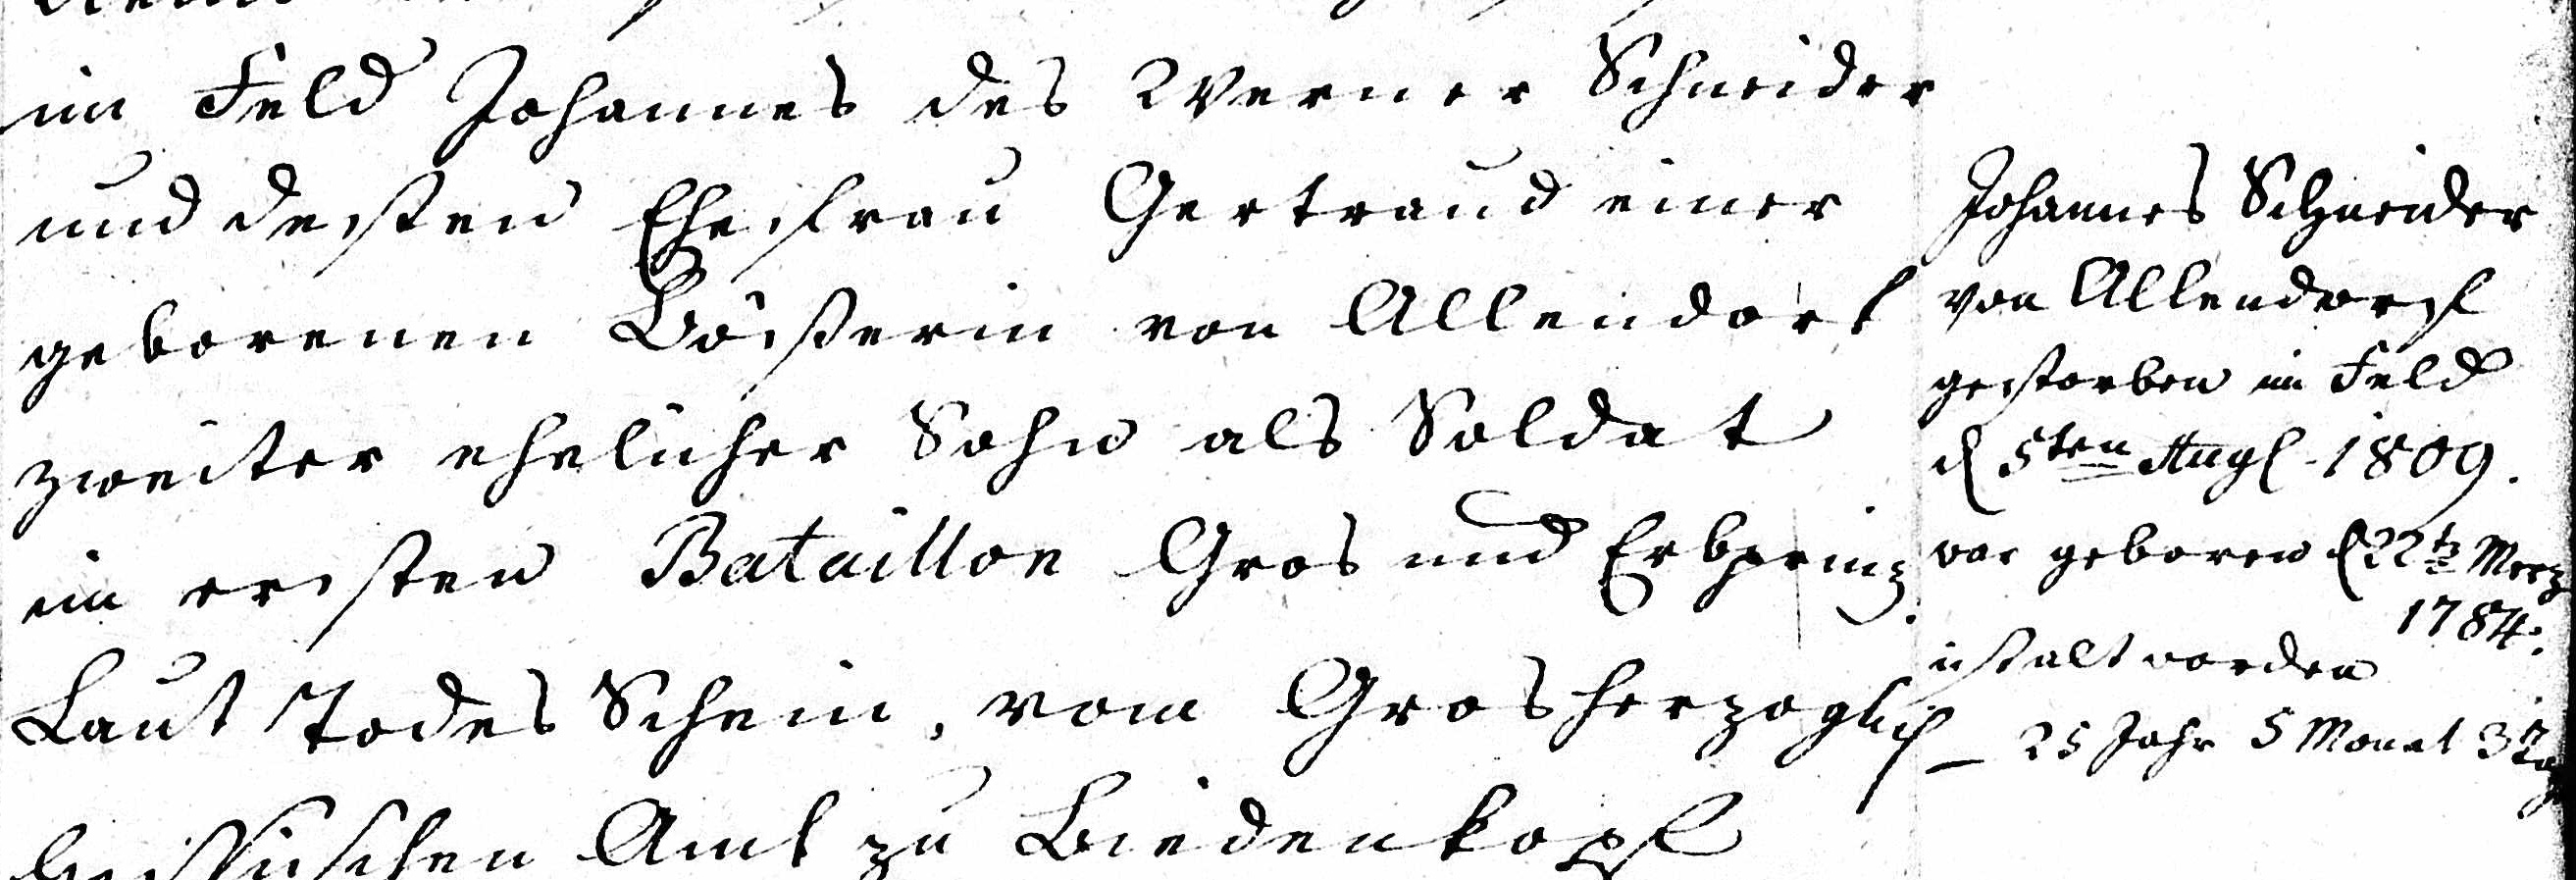 im Feld Johannes des Werner Schneider
und dessten Ehesfrau Gertraud einer
geborenen Böißerin von Allendorf
zweiter ehelicher Sohn als Soldat
im ersten Bataillon Gros und Erbprinz.
Laut Todes Schein, vom Grosherzoglich
Hessischen Amt zu Biedenkopf
Johannes Schneider
von Allendorf
gestorben im Feld
d 5ten Aug. 1809.
war geboren d 22t Merz
1784.
ist alt worden
– 25 Jahr 5 Monat 3 Tag